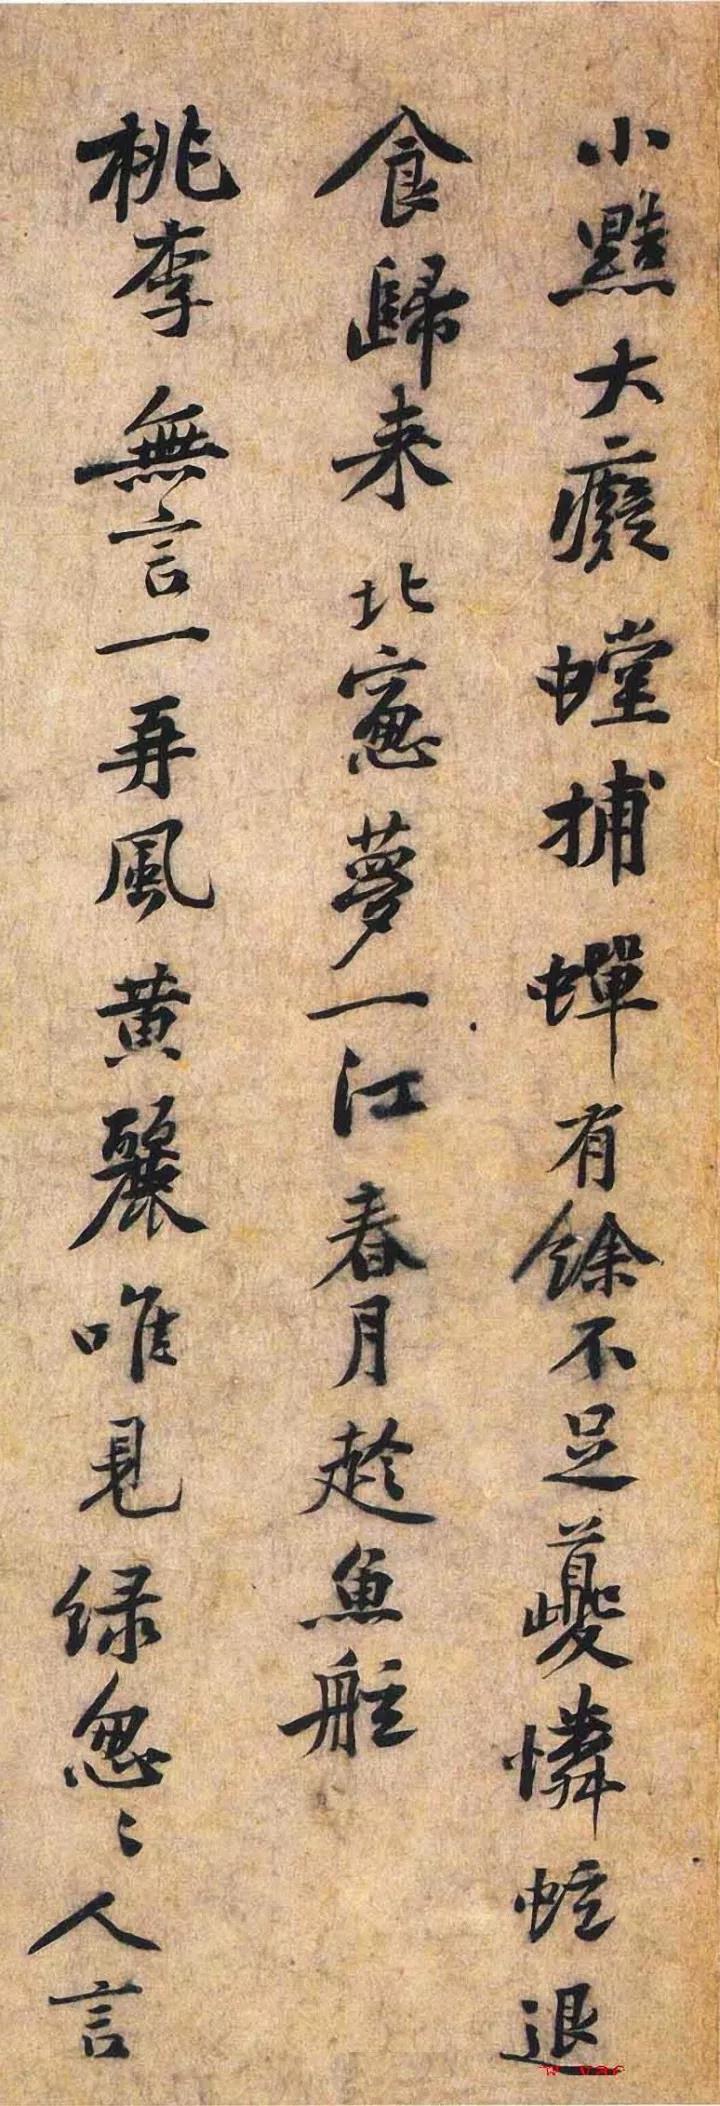 小黠大癡螳捕蟬有餘不足夔憐蚿退
食歸来北窻夢一江春月趂魚船
桃李無言一再風黄麗唯見緑怱〻人言